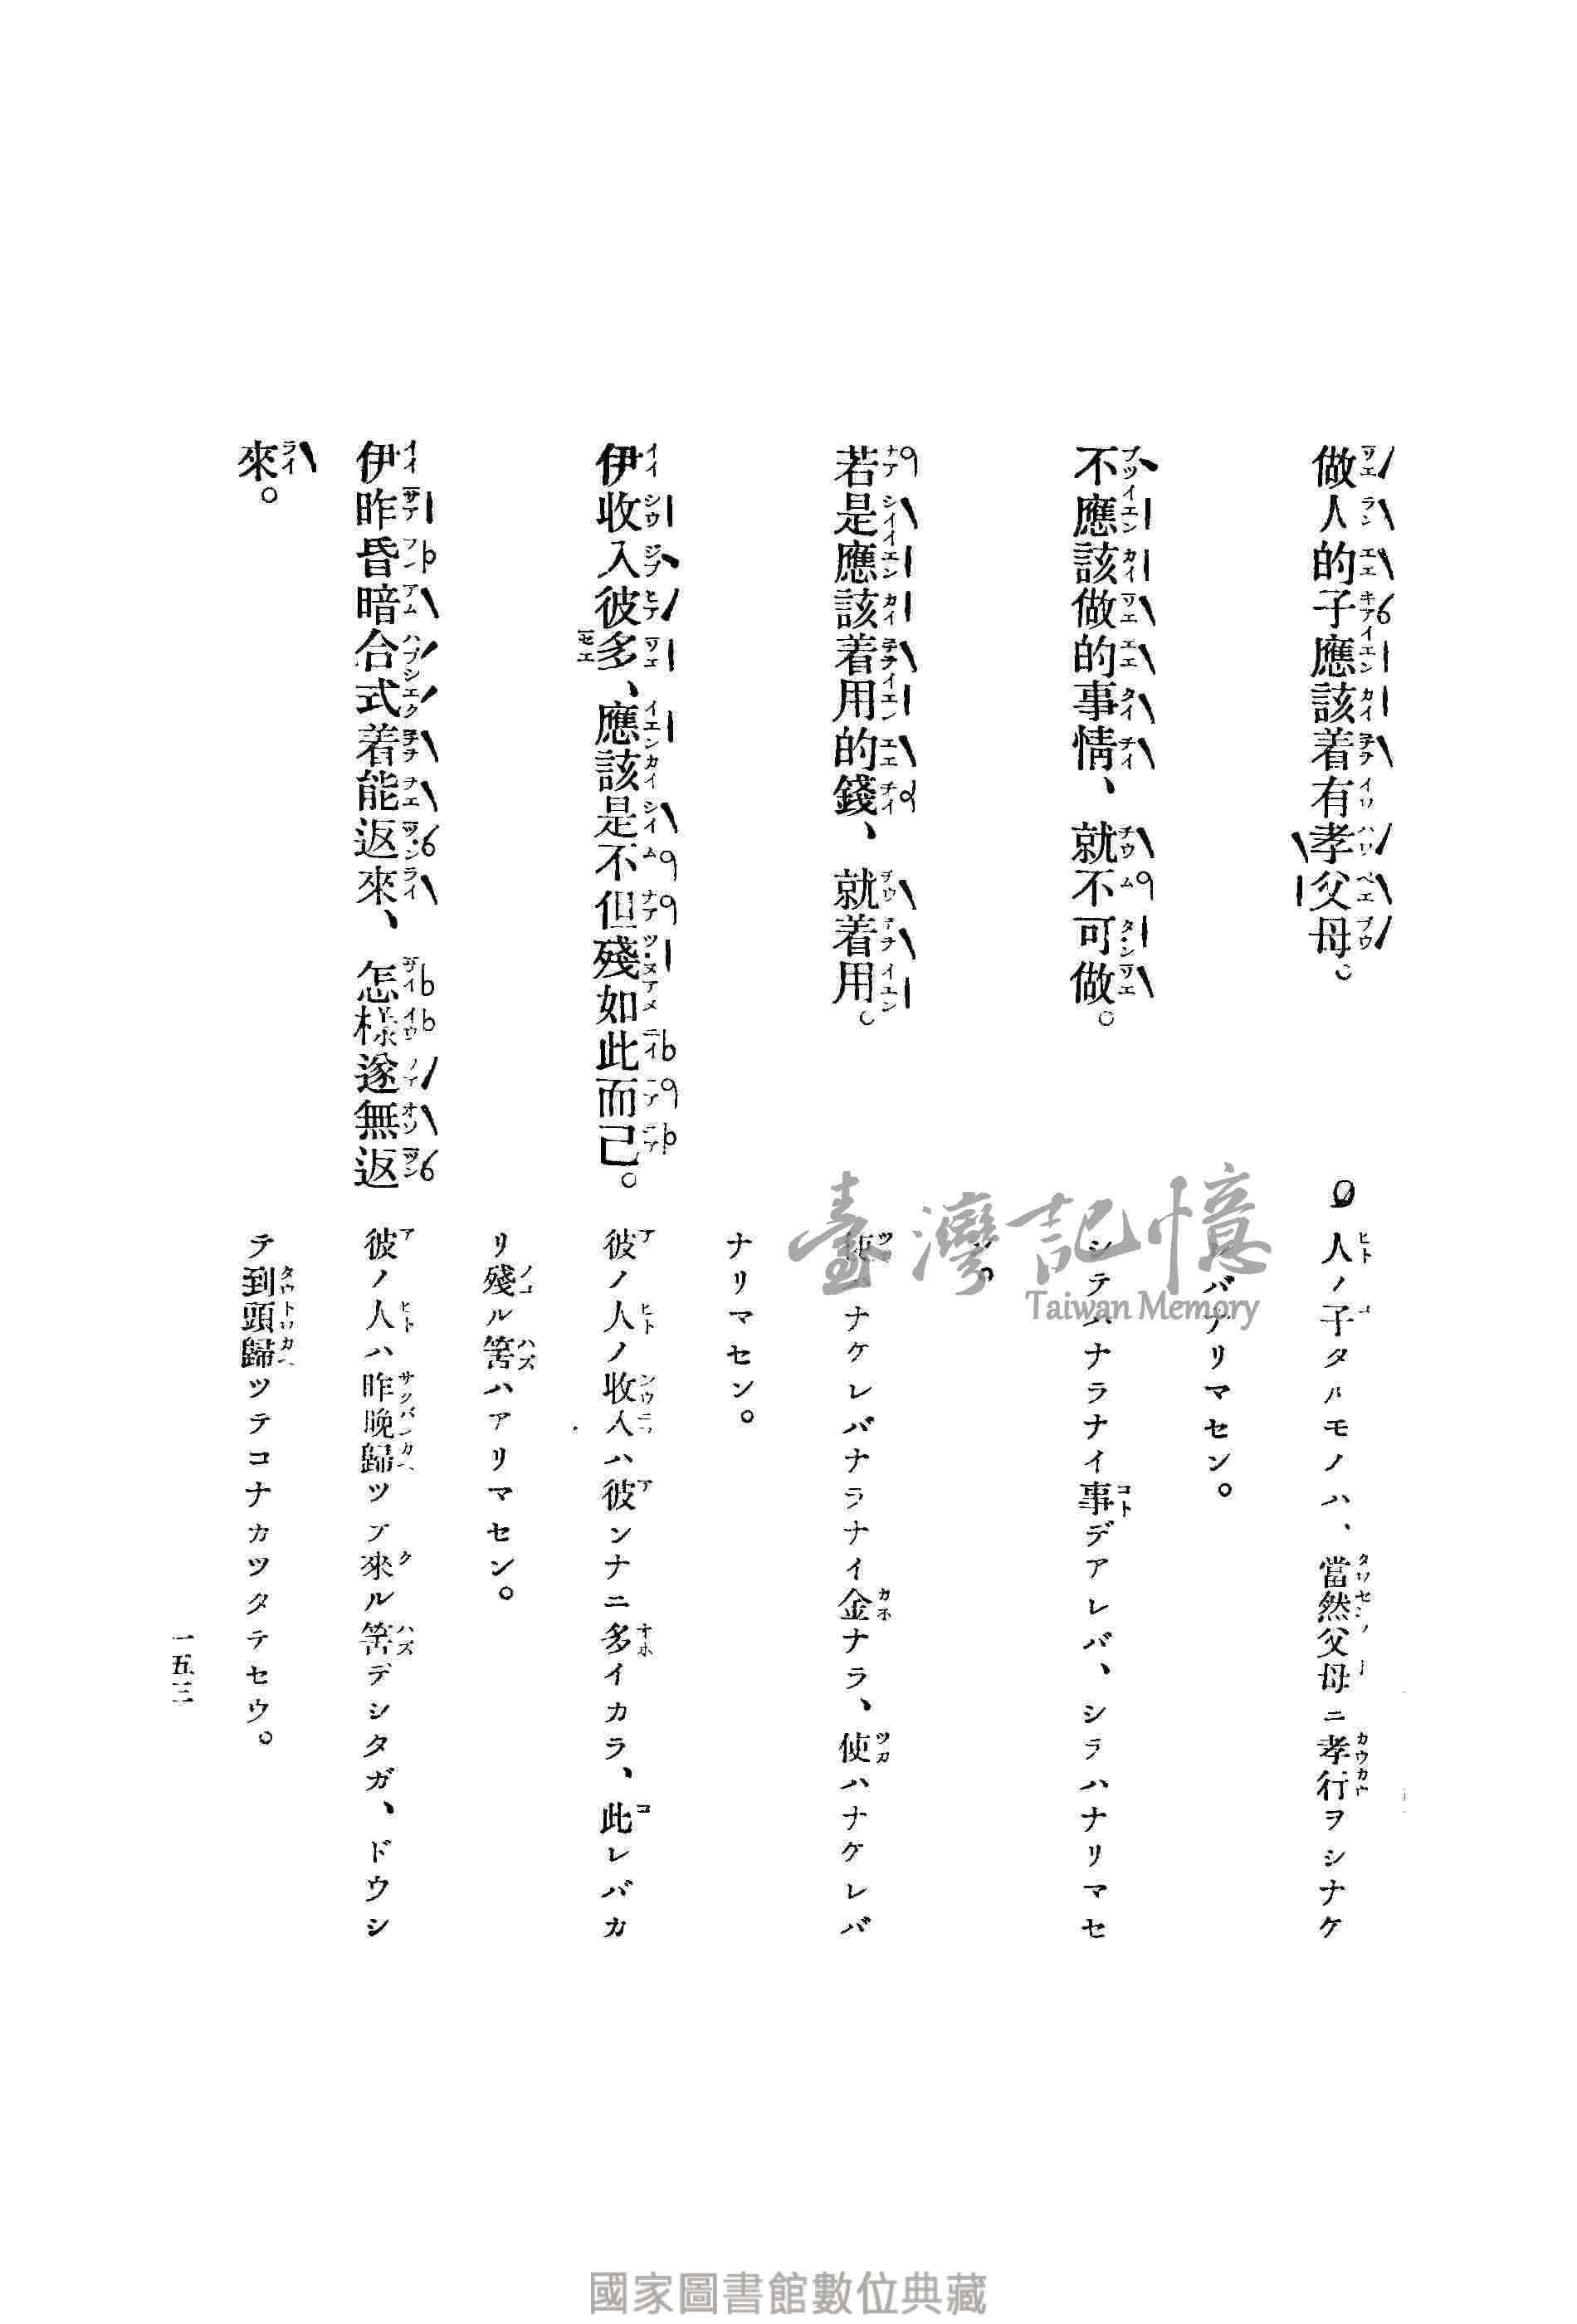 做人的子應該着有孝父母。
人ノ子タルモノハ、當然父母ニ孝行ヲシナケ
バナリマセン。
不應該做的事情、就不可做。
シテハナラナイ事デアレバ、シテハナリマセ
ン。
若是應該着用的錢、就着用。
使ハナケレバナラナイ金ナラ、使ハナケレバ
ナリマセン。
伊收入彼多、應該是不但殘如此而己。
彼ノ人ノ收入ハ彼ンナニ多イカラ、此レバカ
リ殘ル筈ハアリマセン。
伊昨昏暗合式着能返來、怎樣遂無返
來。
彼ノ人ハ昨晩歸ツテ來ル筈デシタガ、ドウシ
テ到頭歸ツテコナカツタデセウ。
一五三
臺灣記憶
Taiwan Memory
國家圖書館數位典藏